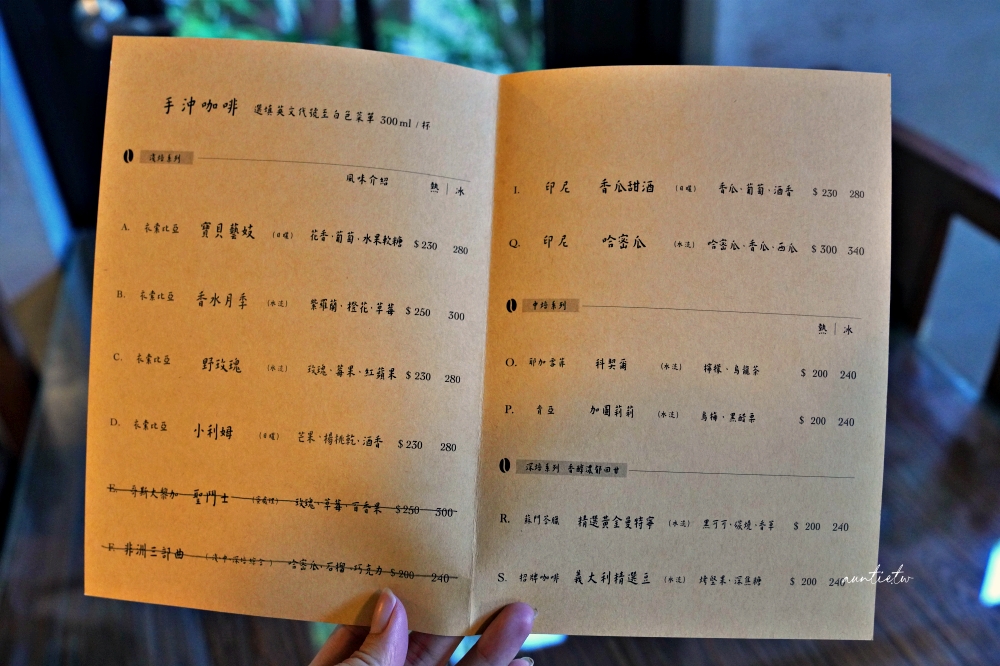 手沖咖啡 選填英文代號至白色菜單 300ml / 杯
淺焙系列
風味介紹 熱 | 冰
A. 衣索比亞 寶貝藝妓 (日曬) 花香·葡萄·水果軟糖 $230 280
B. 衣索比亞 香水月季 (水洗) 紫羅蘭·橙花·草莓 $250 300
C. 衣索比亞 野玫瑰 (水洗) 玫瑰·莓果·紅蘋果 $230 280
D. 衣索比亞 小利姆 (日曬) 芒果·楊桃乾·酒香 $230 280
E. 哥斯大黎加 聖鬥士 玫瑰·草莓·百香果 $250 300
F. 非洲三部曲 哈密瓜·石榴·巧克力 $200 240
I. 印尼 香瓜甜酒 (日曬) 香瓜·葡萄·酒香 $230 280
Q. 印尼 哈密瓜 (水洗) 哈密瓜·香瓜·西瓜 $300 340
中焙系列
熱 | 冰
O. 耶加雪菲 科契爾 (水洗) 檸檬·烏龍茶 $ 200 240
P. 肯亞 加圖莉莉 (水洗) 烏梅·黑醋栗 $ 200 240
深焙系列 香醇濃郁回甘
R. 蘇門答臘 精選黃金曼特寧 (水洗) 黑可可·碳燒·香草 $ 200 240
S. 招牌咖啡 義大利精選豆 (水洗) 烤堅果·深焦糖 $ 200 240
auntietw